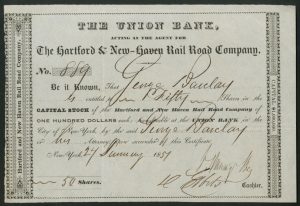 THE UNION BANK,
ACTING AS THE AGENT FOR
The Hartford & New-Haven Rail Road Company.
No. 889
Be it Known, That
George Barclay
is entitled to Fifty Shares in the
CAPITAL STOCK of the Hartford and New Haven Rail Road Company of
ONE HUNDRED DOLLARS each, transferable at the UNION BANK in the
City of New-York by the said George Barclay
or his Attorney on surrender of this Certificate.
New-York 27 January 1851
50 Shares.
Cashier.
Hartford and New Haven Rail Road Company.